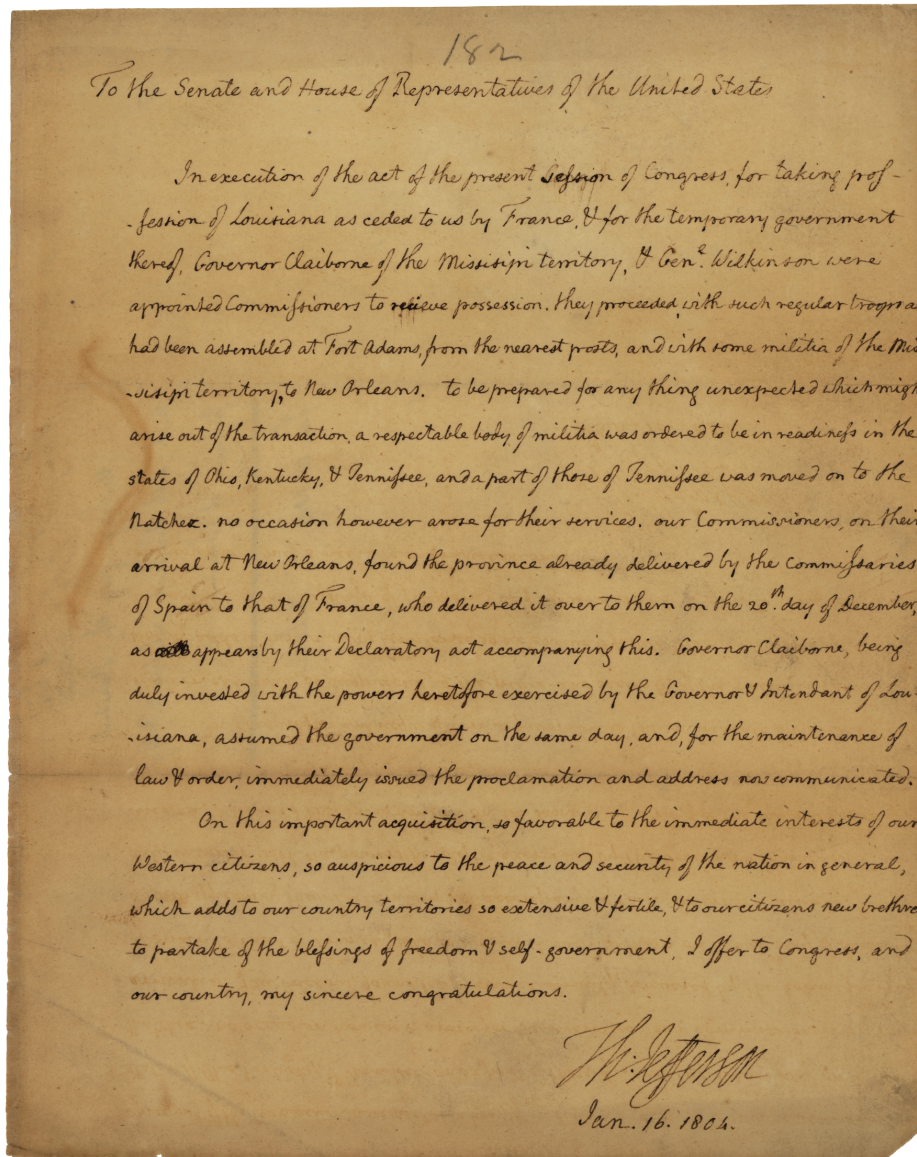 182
To the Senate and House of Representatives of the United States
In execution of the act of the present Session of Congress, for taking pos-
-session of Louisiana as ceded to us by France, & for the temporary government
thereof, Governor Claiborne of the Missisipi territory, & Genl. Wilkinson were
appointed Commissioners to recieve possession. they proceeded with such regular troops a
had been assembled at Fort Adams, from the nearest posts, and with some militia of the Mis
-sisipi territory, to New Orleans. to be prepared for any thing unexpected which migh
arise out of the transaction, a respectable body of militia was ordered to be in readiness in the
states of Ohio, Kentucky, & Tennissee, and a part of those of Tennissee was moved on to the
Natchez. no occasion however arose for their services. our Commissioners, on their
arrival at New Orleans, found the province already delivered by the Commissaries
of Spain to that of France, who delivered it over to them on the 20th. day of December,
as appears by their Declaratory act accompanying this. Governor Claiborne, being
duly invested with the powers heretofore exercised by the Governor & Intendant of Lou-
-isiana, assumed the government on the same day, and, for the maintenance of
law & order, immediately issued the proclamation and address now communicated.
On this important acquisition, so favorable to the immediate interests of our
Western citizens, so auspicious to the peace and security of the nation in general,
which adds to our country territories so extensive & fertile, & to our citizens new brethre
to partake of the blessings of freedom & self-government, I offer to Congress, and
our country, my sincere congratulations.
Th: Jefferson
Jan. 16. 1804.